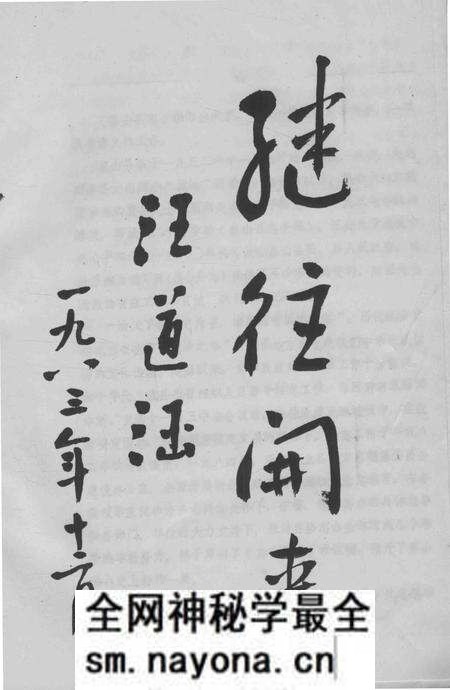 继往開来
汪道涵
一九八三年十二月
全网神秘学最全
sm.nayona.cn